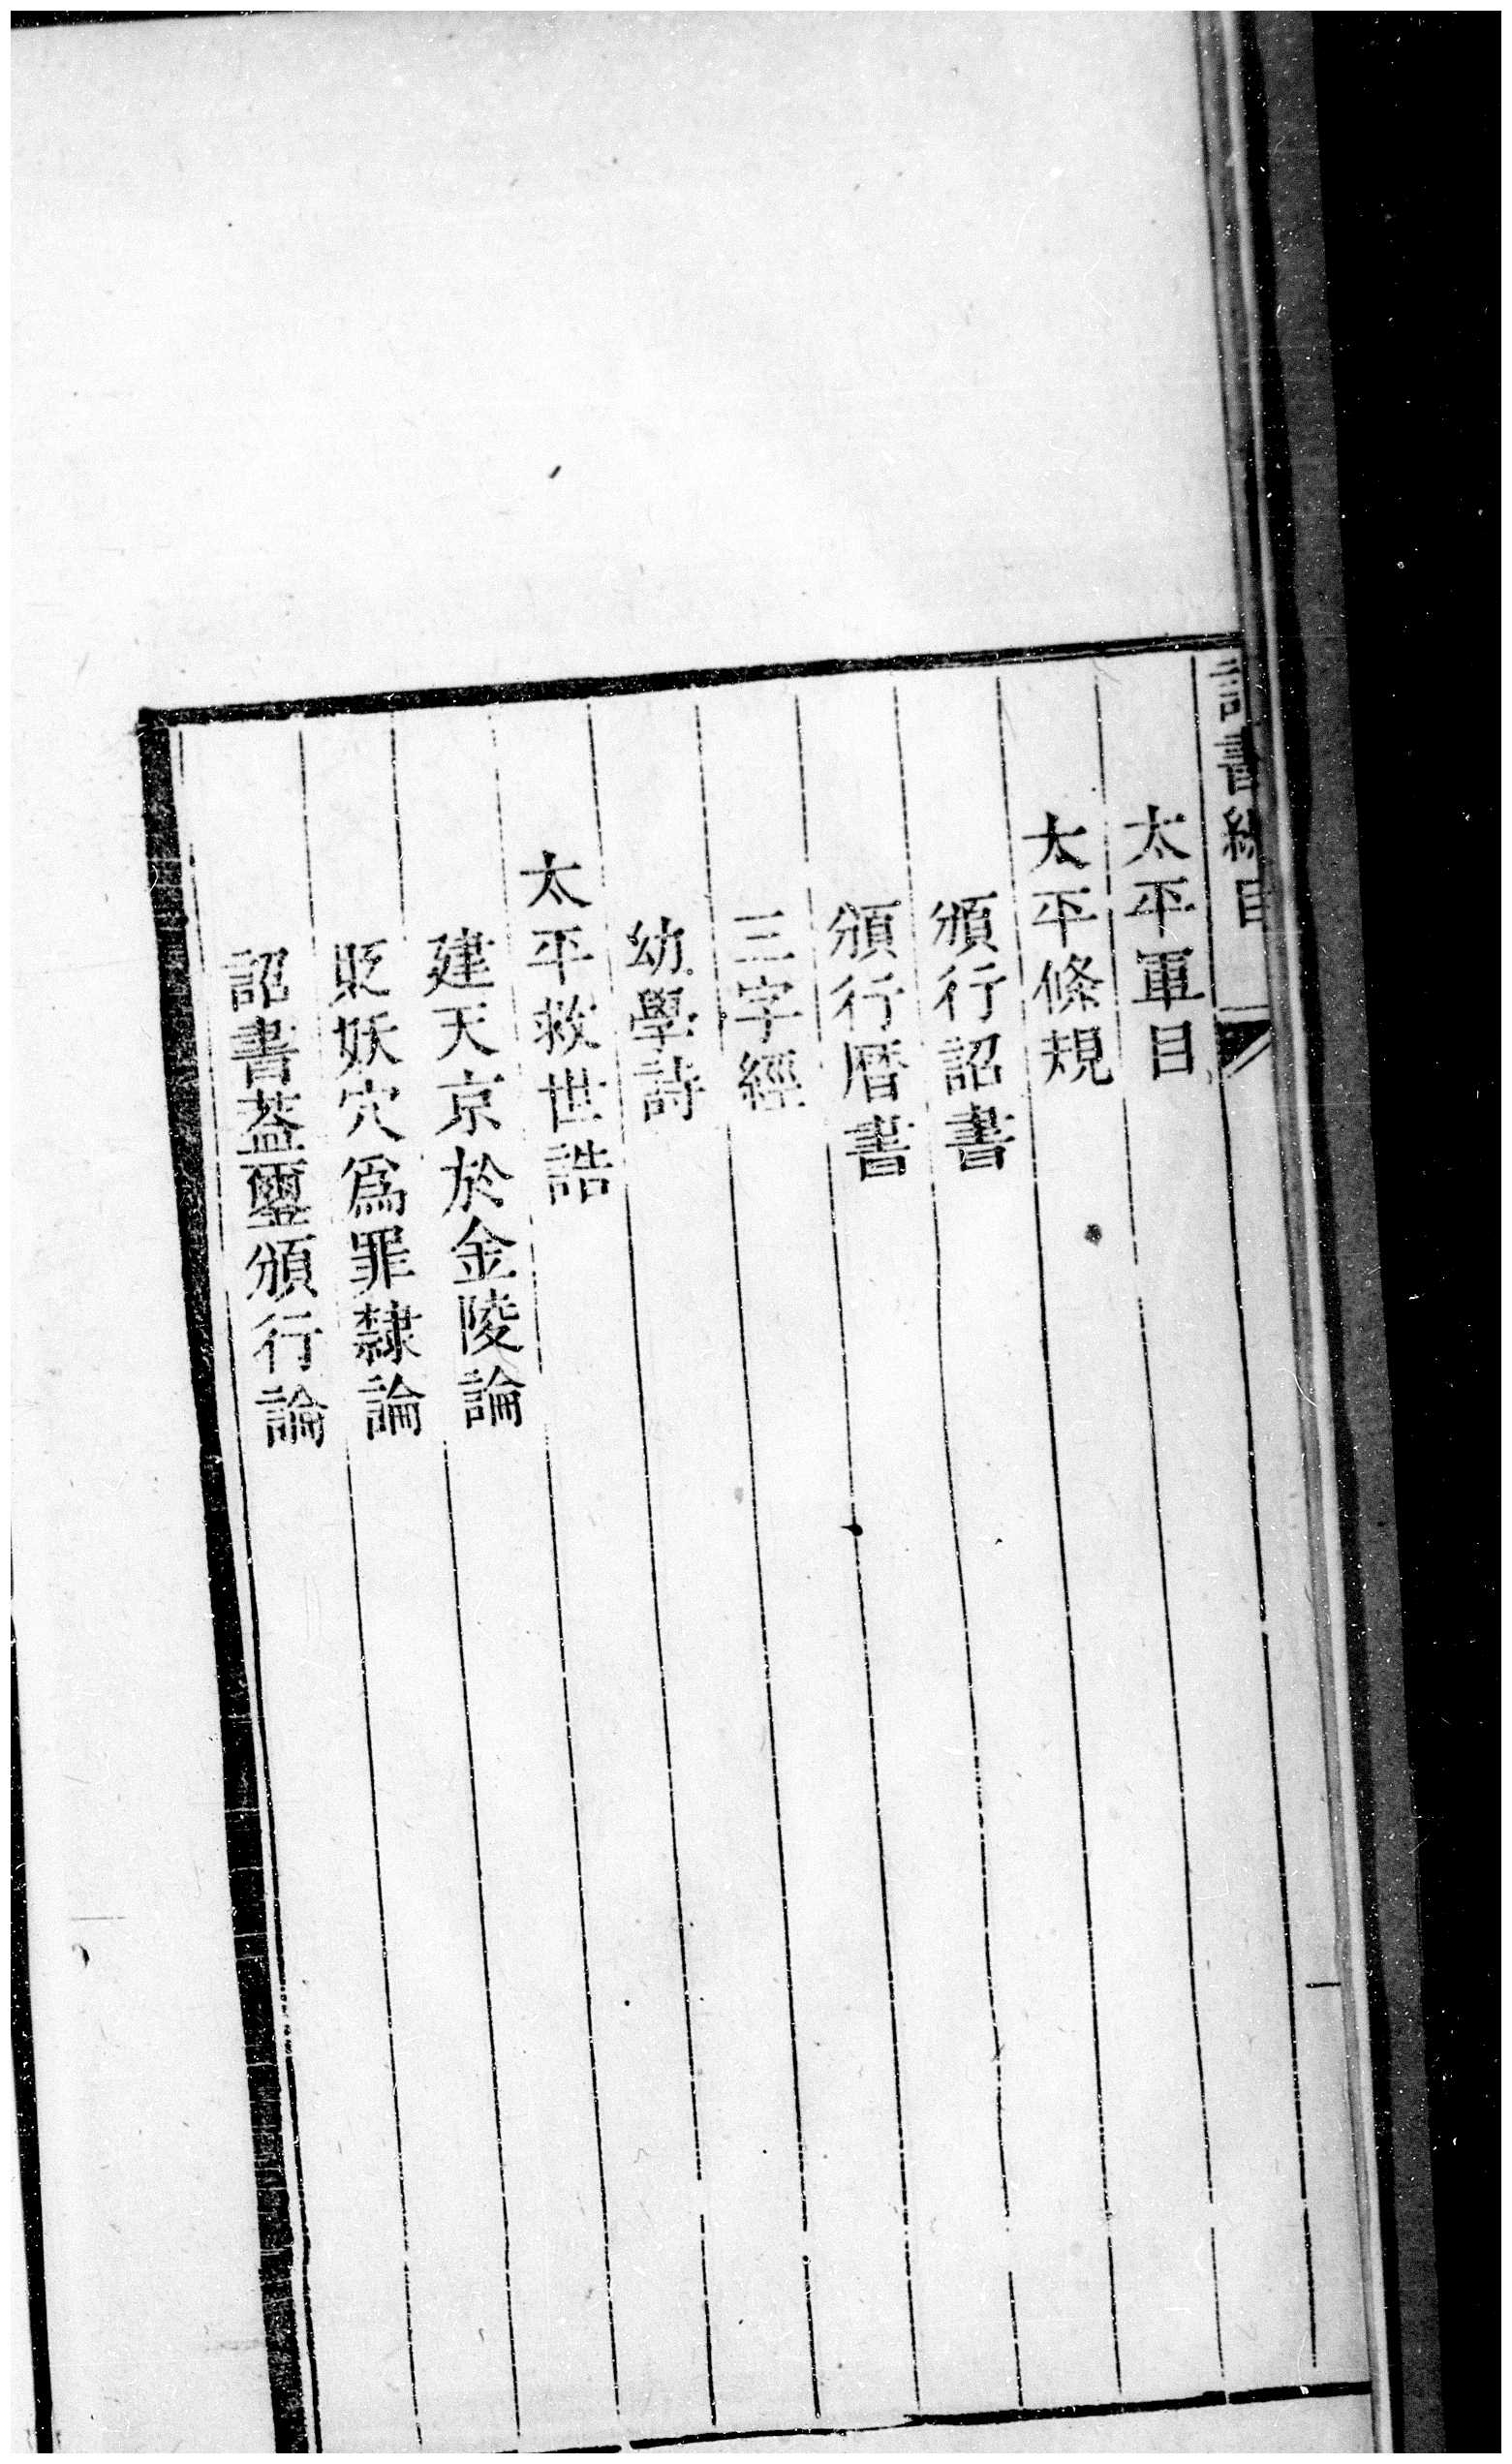 太平軍目
太平條規
頒行詔書
頒行曆書
三字經
幼學詩
太平救世誥
建天京於金陵論
貶妖穴爲罪隸論
詔書葢璽頒行論